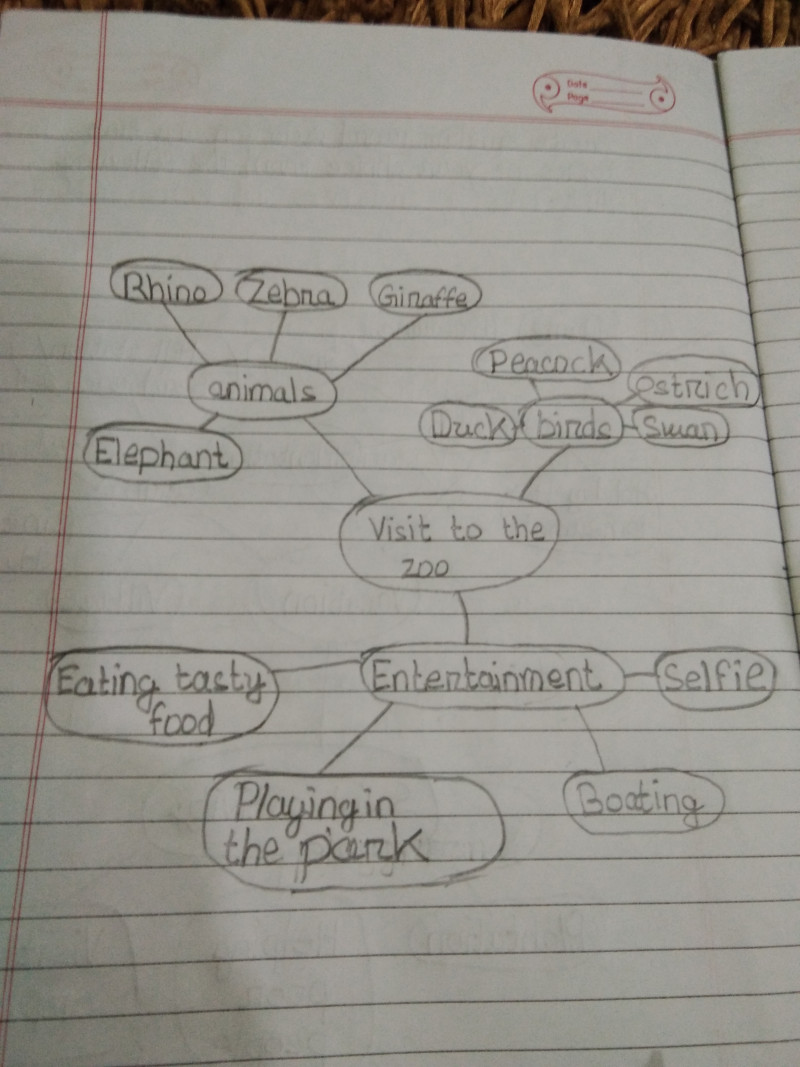 Date
Page
Rhino Zebra Giraffe
Peacock
animals
ostrich
Duck birds Swan
Elephant
Visit to the
zoo
Eating tasty
food
Entertainment
Selfie
Playing in
the park
Boating